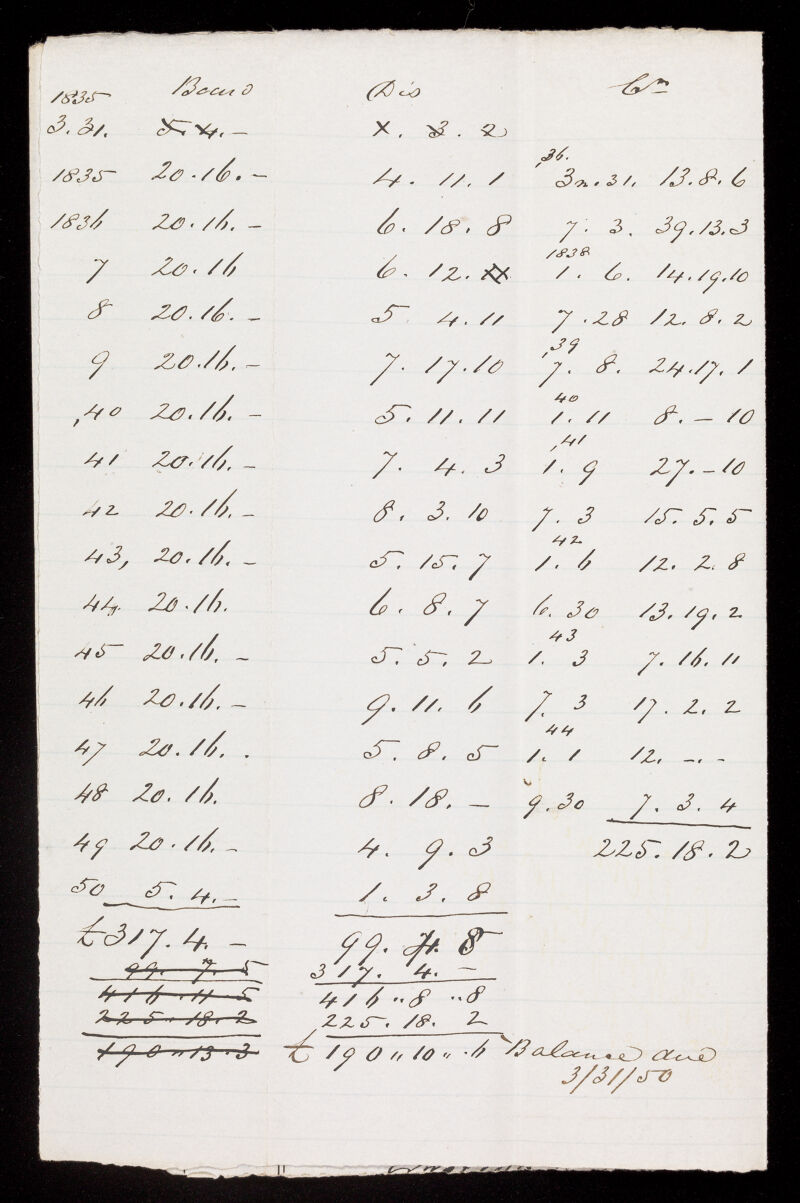 1835 Board Dis Cr
3.31. 5.4.- x. 3. 2
,36.
1835 20.16.- 4. 11. 1 3m.31. 13.8.6
1836 20.16.- 6. 18. 8 7. 3. 39.13.3
1838
7 20.16 6. 12. 1. 6. 14.19.10
8 20.16.- 5 4.11 7.28 12. 8. 2
,39
9 20.16.- 7. 17.10 7. 8. 24.17. 1
40
,40 20.16.- 5.11.11 1.11 8.-10
,41
41 20.16.- 7. 4. 3 1. 9 27.-10
42 20.16.- 8. 3. 10 7. 3 15. 5. 5
42
43, 20.16.- 5. 15. 7 1. 6 12. 2. 8
44. 20.16. 6. 8. 7 6. 30 13. 19. 2
43
45 20.16.- 5. 5. 2 1. 3 7. 16. 11
46 20.16.- 9. 11. 6 7. 3 17. 2. 2
44
47 20.16.. 5. 8. 5 1. 1 12. -.-
48 20.16. 8. 18. - 9.30 7. 3. 4
49 20.16.- 4. 9. 3 225.18.2
50 5. 4.- 1. 3. 8
£317. 4. - 99. 4. 8
99. 7. 5 317. 4. -
416.11 5 416 "8 "8
225.18.2 225. 18. 2
190"13.3 £190"10".6 Balance due
3/31/50